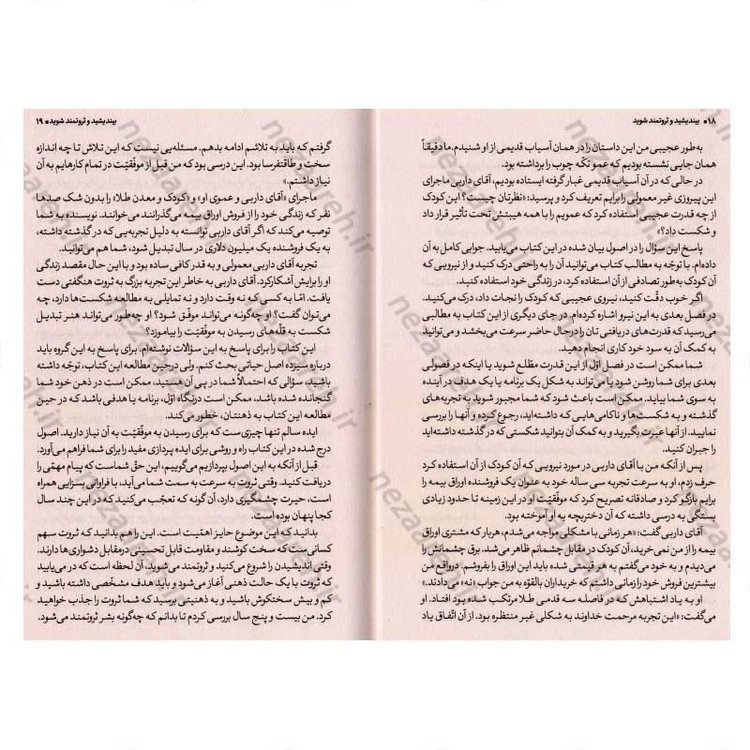 ۱۸• بیندیشید و ثروتمند شوید
به‌طور عجیبی من این داستان را در همان آسیاب قدیمی از او شنیدم. ما دقیقاً
همان جایی نشسته بودیم که عمو تکّه چوب را برداشته بود.
در حالی که در آن آسیاب قدیمی غبار گرفته ایستاده بودیم، آقای داربی ماجرای
این پیروزی غیر معمولی را برایم تعریف کرد و پرسید: «نظرتان چیست؟ این کودک
از چه قدرت عجیبی استفاده کرد که عمویم را با همه هیبتش تحت تأثیر قرار داد
و شکست داد؟»
پاسخ این سؤال را در اصول بیان شده در این کتاب می‌یابید. جوابی کامل به آن
داده‌ام. با توجّه به مطالب کتاب می‌توانید آن را به راحتی درک کنید و از نیرویی که
آن کودک به‌طور تصادفی از آن استفاده کرد، در زندگی خود استفاده کنید.
اگر خوب دقّت کنید، نیروی عجیبی که کودک را نجات داد، درک می‌کنید.
در فصل بعدی به این نیرو اشاره کرده‌ام. در جای دیگری از این کتاب به مطالبی
می‌رسید که قدرت‌های دریافتی تان را درحال حاضر سرعت می‌بخشد و می‌توانید
به کمک آن به سود خود کاری انجام دهید.
شما ممکن است در فصل اوّل از این قدرت مطّلع شوید یا اینکه در فصولی
بعدی برای شما روشن شود یا می‌تواند به شکل یک برنامه یا یک هدف در آینده
به سوی شما بیاید. ممکن است باعث شود که شما مجبور شوید به تجربه‌های
گذشته و به شکست‌ها و ناکامی‌هایی که داشته‌اید، رجوع کرده و آنها را بررسی
نمایید. از آنها عبرت بگیرید و به کمک آن بتوانید شکستی که در گذشته داشته‌اید
را جبران کنید.
پس از آنکه من با آقای داربی در مورد نیرویی که آن کودک از آن استفاده کرد
حرف زدم، او به سرعت تجربه سی ساله خود به عنوان یک فروشنده اوراق بیمه را
برایم بازگو کرد و صادقانه تصریح کرد که موفقیّت او در این زمینه تا حدود زیادی
بستگی به درسی داشته که آن دختربچه به او آموخته بود.
آقای داربی گفت: «هر زمانی با مشکلی مواجه می‌شدم، هربار که مشتری اوراق
بیمه از من نمی‌خرید، آن کودک در مقابل چشمانم ظاهر می‌شد. برق چشمانش را
می‌دیدم و به خود می‌گفتم به هر قیمتی شده باید این اوراق را بفروشم. درواقع من
بیشترین فروش خود را زمانی داشتم که خریداران بالقوّه به من جواب «نه» می‌دادند.»
او به یاد اشتباهش که در فاصله سه قدمی طلا مرتکب شده بود افتاد. او
می‌گفت: «این تجربه مرحمت خداوند به شکلی غیر منتظره بود. از آن اتّفاق یاد
بیندیشید و ثروتمند شوید • ۱۹
گرفتم که باید به تلاشم ادامه بدهم. مسئله‌یی نیست که این تلاش تا چه اندازه
سخت و طاقتفرسا بود. این درسی بود که من قبل از موفقیّت در تمام کارهایم به آن
نیاز داشتم.»
ماجرای «آقای داربی و عموی او» و «کودک و معدن طلا» را بدون شک صدها
نفر که زندگی خود را از فروش اوراق بیمه می‌گذرانند می‌خوانند. نویسنده به شما
توصیه می‌کند که اگر آقای داربی توانسته به دلیل تجاربی که در گذشته داشته،
به یک فروشنده یک میلیون دلاری در سال تبدیل شود، شما هم می‌توانید.
تجربه آقای داربی معمولی و به قدر کافی ساده بود و با این حال مقصد زندگی
او را برایش آشکارکرد. آقای داربی به خاطر این تجربه بزرگ به ثروت هنگفتی دست
یافت. امّا به کسی که نه وقت دارد و نه تمایلی به مطالعه شکست‌ها دارد، چه
می‌توان گفت؟ او چه‌گونه می‌تواند موفق شود؟ او چه‌طور می‌تواند هنر تبدیل
شکست به قلّه‌های رسیدن به موفقیّت را بیاموزد؟
این کتاب را برای پاسخ به این سؤالات نوشته‌ام. برای پاسخ به این گروه باید
درباره سیزده اصل حیاتی بحث کنم. ولی درحین مطالعه این کتاب، توجّه داشته
باشید، سؤالی که احتمالاً شما در پی آن هستید، ممکن است در ذهن خود شما
گنجانده شده باشد، ممکن است درنگاه اوّل، برنامه یا هدفی باشد که در حین
مطالعه این کتاب به ذهنتان، خطور می‌کند.
ایده سالم تنها چیزی‌ست که برای رسیدن به موفّقیّت به آن نیاز دارید. اصول
درج شده در این کتاب راه و روشی برای ایده پردازی مفید را برای شما فراهم می‌آورد.
قبل از آنکه به این اصول بپردازیم می‌گوییم، این حقّ شماست که پیام مهمّی را
دریافت کنید. وقتی ثروت به سرعت به سمت شما می‌آید، با فراوانی بسزایی همراه
است، حیرت چشمگیری دارد، آن گونه که تعجّب می‌کنید که در این چند سال
کجا پنهان بوده است.
بدانید که این موضوع حایز اهمّیّت است. این را هم بدانید که ثروت سهم
کسانی‌ست که سخت کوشند و مقاومت قابل تحسینی درمقابل دشواری‌ها دارند.
وقتی اندیشیدن را شروع می‌کنید و ثروتمند می‌شوید، آن لحظه است که در می‌یابید
که ثروت با یک حالت ذهنی آغاز می‌شود و باید هدف مشخّصی داشته باشید و
کم و بیش سختکوش باشید و به ذهنیتی برسید که شما ثروت را جذب خواهید
کرد. من بیست و پنج سال بررسی کردم تا بدانم که چه‌گونه بشر ثروتمند می‌شود.
nezaareh.ir